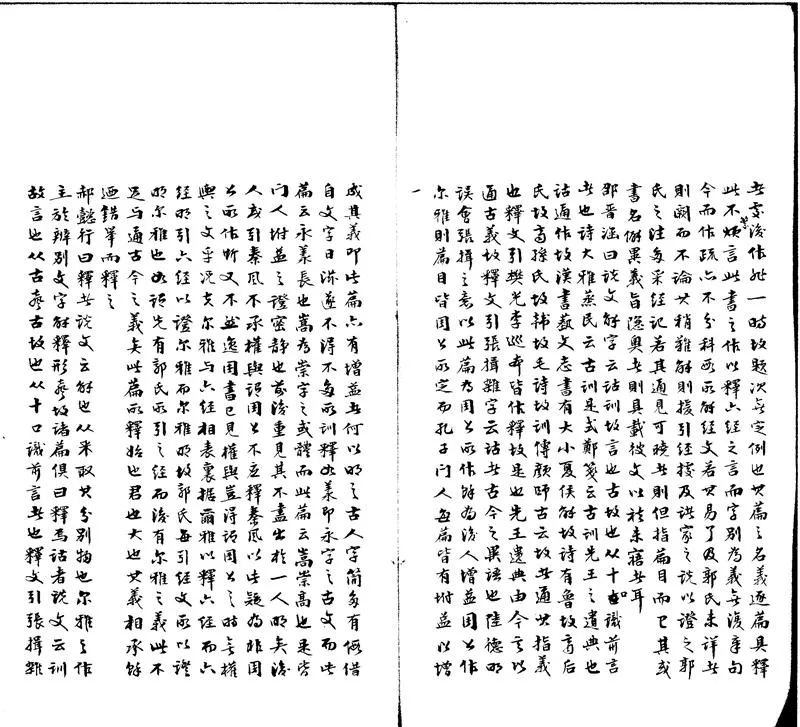 者蒙後作非一時故題次無定例也其篇之名義逐篇具釋
此不煩言此書之作以釋六經之言而字別為義無復章句
今而作疏亦不分科段所解經文若其易了及郭氏未詳者
則闕而不論其稍難解則援引經據及諸家之說以證之郭
氏之注每采經記若其通見可曉者則但指篇目而已其或
書名僻異義旨隱奧者則具載彼文以袪未寤者耳
邵晉涵曰說文解字云詁訓故言也古故也从十口識前言
者也詩大雅蒸民云古訓是式鄭箋云古訓先王之遺典也
詁通作故漢書藝文志書有大小夏侯解故詩有魯故齊后
氏故齊孫氏故韓故毛詩故訓傳顏師古云故者通其指義
也釋文引樊光李巡本皆作釋故是也先王遺典由今言以
通古義故釋文引張揖雜字云詁者古今之異語也陸德明
誤會張揖之意以此篇為周公所作餘為後人增益周公作
尔雅則篇目皆周公所定而孔子門人每篇皆有坿益以增
一
成其義即此篇亦有增益者何以明之古人字簡多有假借
自文字日滋遂不得不多所訓釋如羕即永字之古文而此
篇云永羕長也嵩為崇字之或體而此篇云嵩崇高也是皆
門人坿益之證密靜也前後重見其不盡出於一人明矣後
人或引秦風不承權輿謂周公不應釋秦風以此疑為非周
公所作斯又不然逸周書已見權輿豈得謂周公之時無權
輿之文乎況夫尔雅与六經相表裏據爾雅以釋六經而六
經明引六經以證尔雅而尔雅明故郭氏每引經文所以證
明尔雅也如謂先有郭氏所引之經而後有尔雅之義此不
足与通古今之義矣此篇所釋始也君也大也其義相承餘
迺錯舉而釋之
郝懿行曰釋者說文云解也从釆取其分別物也尔雅之作
主於辨別文字解釋形聲故諸篇俱曰釋焉詁者說文云訓
故言也从古聲古故也从十口識前言者也釋文引張揖雜